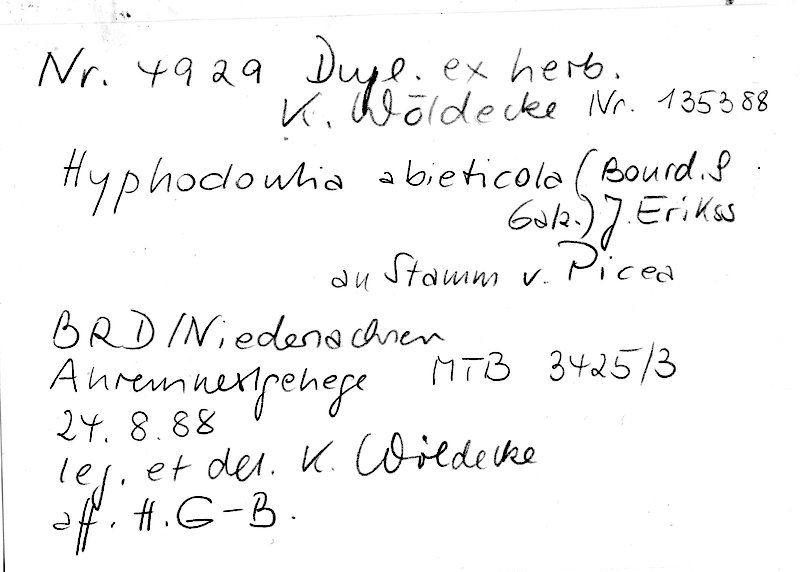 Nr. 4929 Dupl. ex herb.
K. Wöldecke Nr. 135388
Hyphodontia abieticola (Bourd. &
Galz.) J. Erikss
an Stamm v. Picea
BRD/Niedersachsen
MTB 3425/3
24. 8. 88
leg. et det. K. Wöldecke
aff. H. G-B.